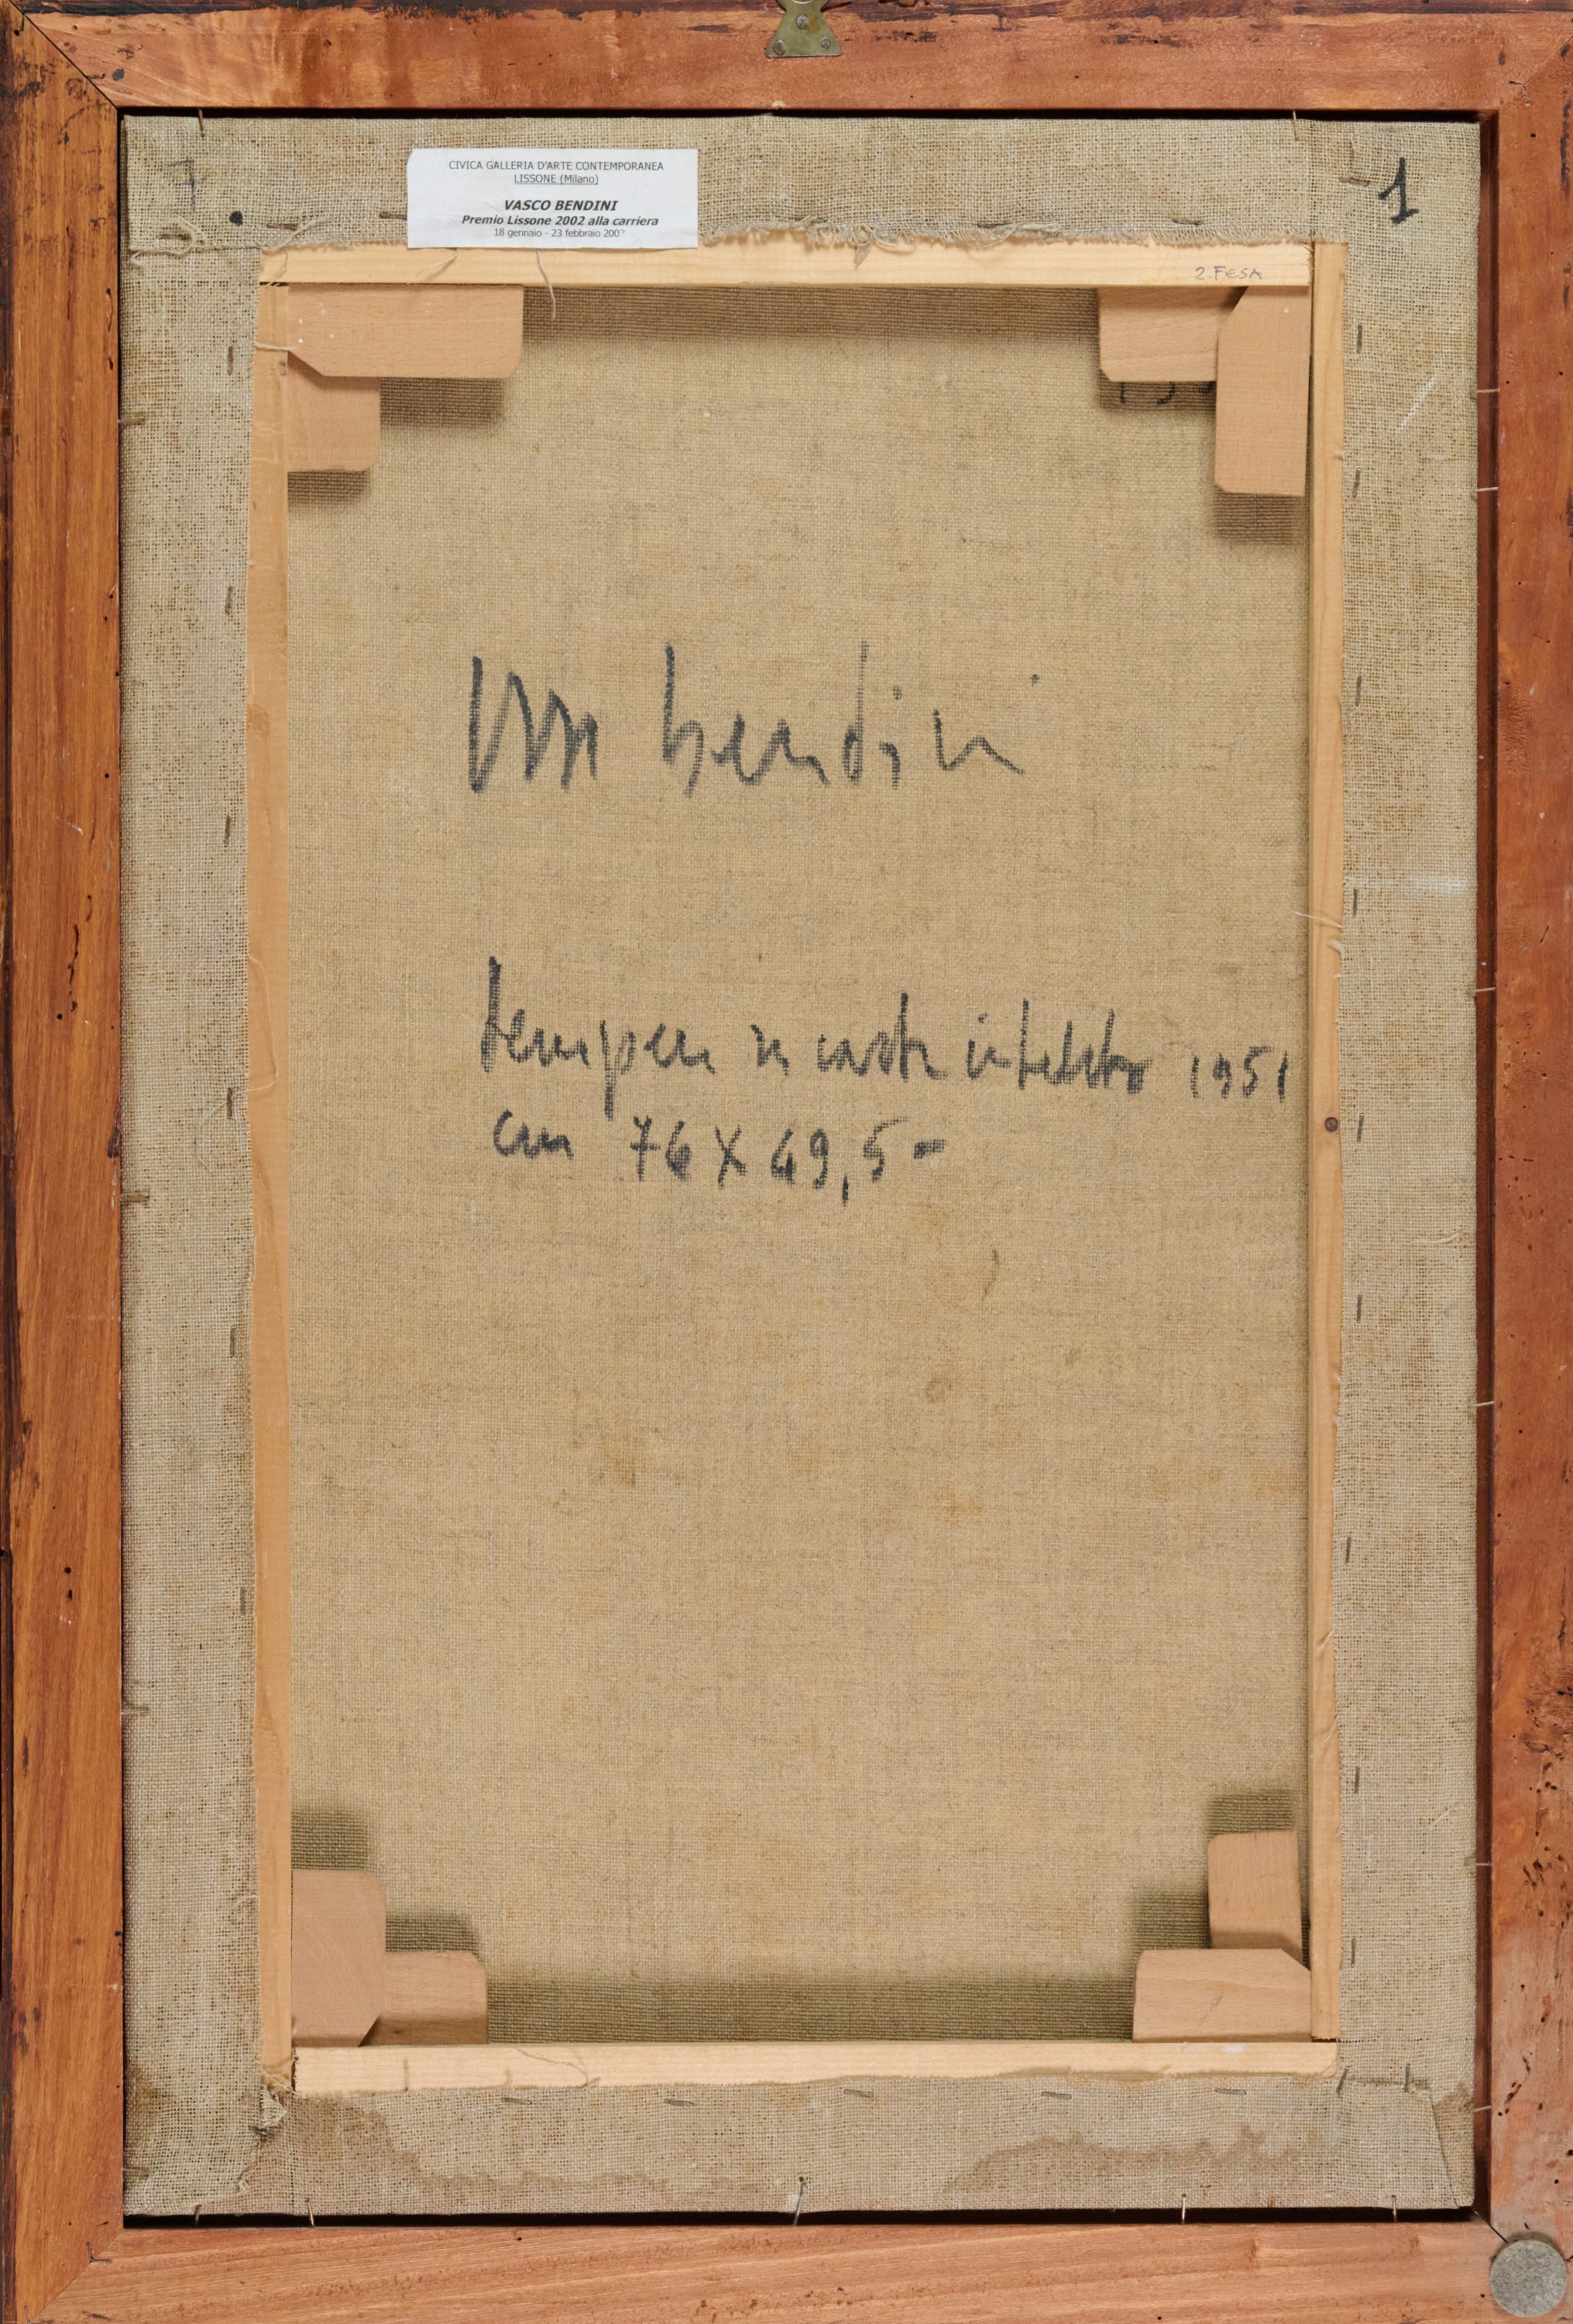 1
CIVICA GALLERIA D'ARTE CONTEMPORANEA
LISSONE (Milano)
VASCO BENDINI
Premio Lissone 2002 alla carriera
18 gennaio - 23 febbraio 2003
2. FESA
bendini
tempera su carta intelata 1951
cm 76 X 49,5-